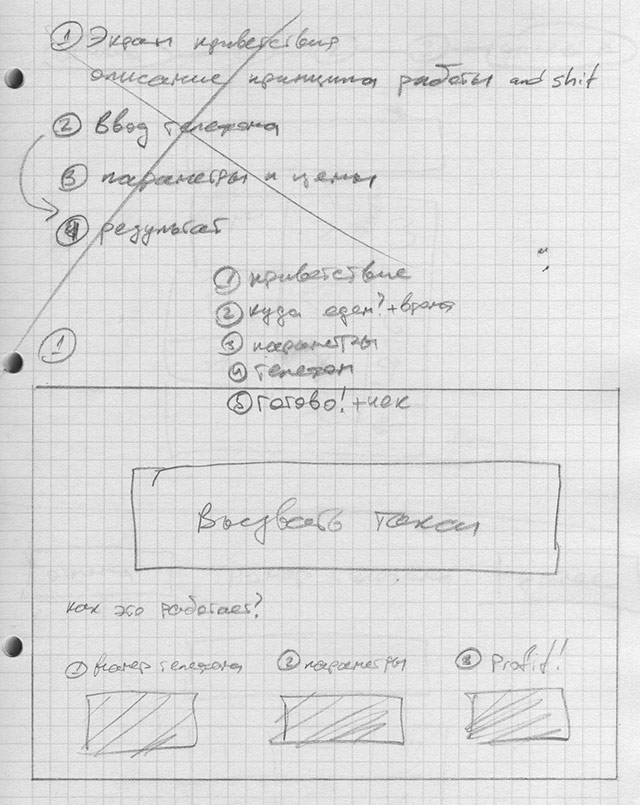 1 Экран приветствия
описание принципа работы and shit
2 Ввод телефона
3 параметры и цены
4 результат
1 приветствие
2 куда едем? + время
3 параметры
4 телефон
5 Готово! + чек
1
Вызвать такси
как это работает?
1 номер телефона 2 параметры 3 Profit!